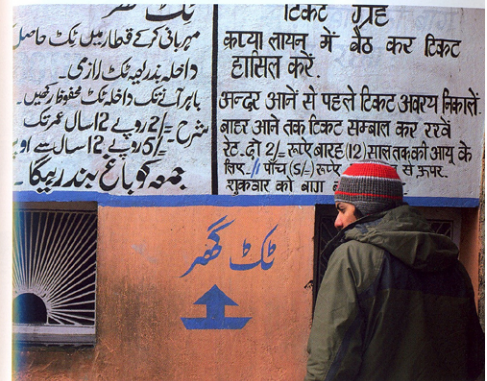 ٹکٹ گھر
مہربانی کر کے قطار میں ٹکٹ حاصل
داخلہ بذریعہ ٹکٹ لازمی۔
باہر آنے تک داخلہ ٹکٹ محفوظ رکھیں۔
شرح ۔ 2/ روپے 12 سال عمر تک
5/ روپے 12 سال سے اوپر
جمعہ کو باغ بند رہیگا۔
टिकट ग्रह
कृप्या लायन में बैठ कर टिकट
हासिल करें.
अन्दर आनें से पहले टिकट अवश्य निकालें.
बाहर आने तक टिकट सम्बाल कर रखें
रेट. दो 2/= रूपए बारह (12) साल तक की आयु के
लिए.- // पाँच (5/-) रूपए से ऊपर.
शुक्रवार को बाग
ٹکٹ گھر